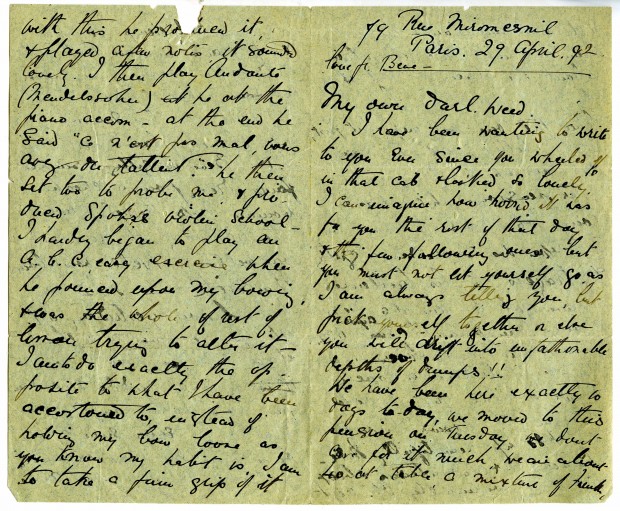 79 Rue Miromesnil
Paris. 29 April. 92
My own Darl. Weed
I have been wanting to write
to you Ever since you wheeled off
in that cab & looked so lonely,
I can imagine how horrid it was
for you the rest of that day
& the few following ones, but
you must not let yourself go as
I am always telling you, but
pick yourself together or else
you will drift into unfathomable
depths of dumps!!
We have been here exactly 10
days to-day, we moved to this
pension on Tuesday we dont
for it much, we are about
at table a mixture of French,
with this he produced it
& played a few notes it sounded
lovely. I then play Andante
(Mendelssohn) he at the
piano accom - at the end he
said "Ce n'est pas mal, vous
avez du tallent". he then
set to to probe me. & pro-
duced Spohrs violin School -
I hardly began to play an
a. b. c easy exercise when
he pounced upon my bowing,
& was the whole rest of
lesson trying to alter it -
I am to do exactly the op-
posite to what I have been
accostomed to, instead of
holding my bow loose as
you know my habit is, I am
to take a firm grip of it